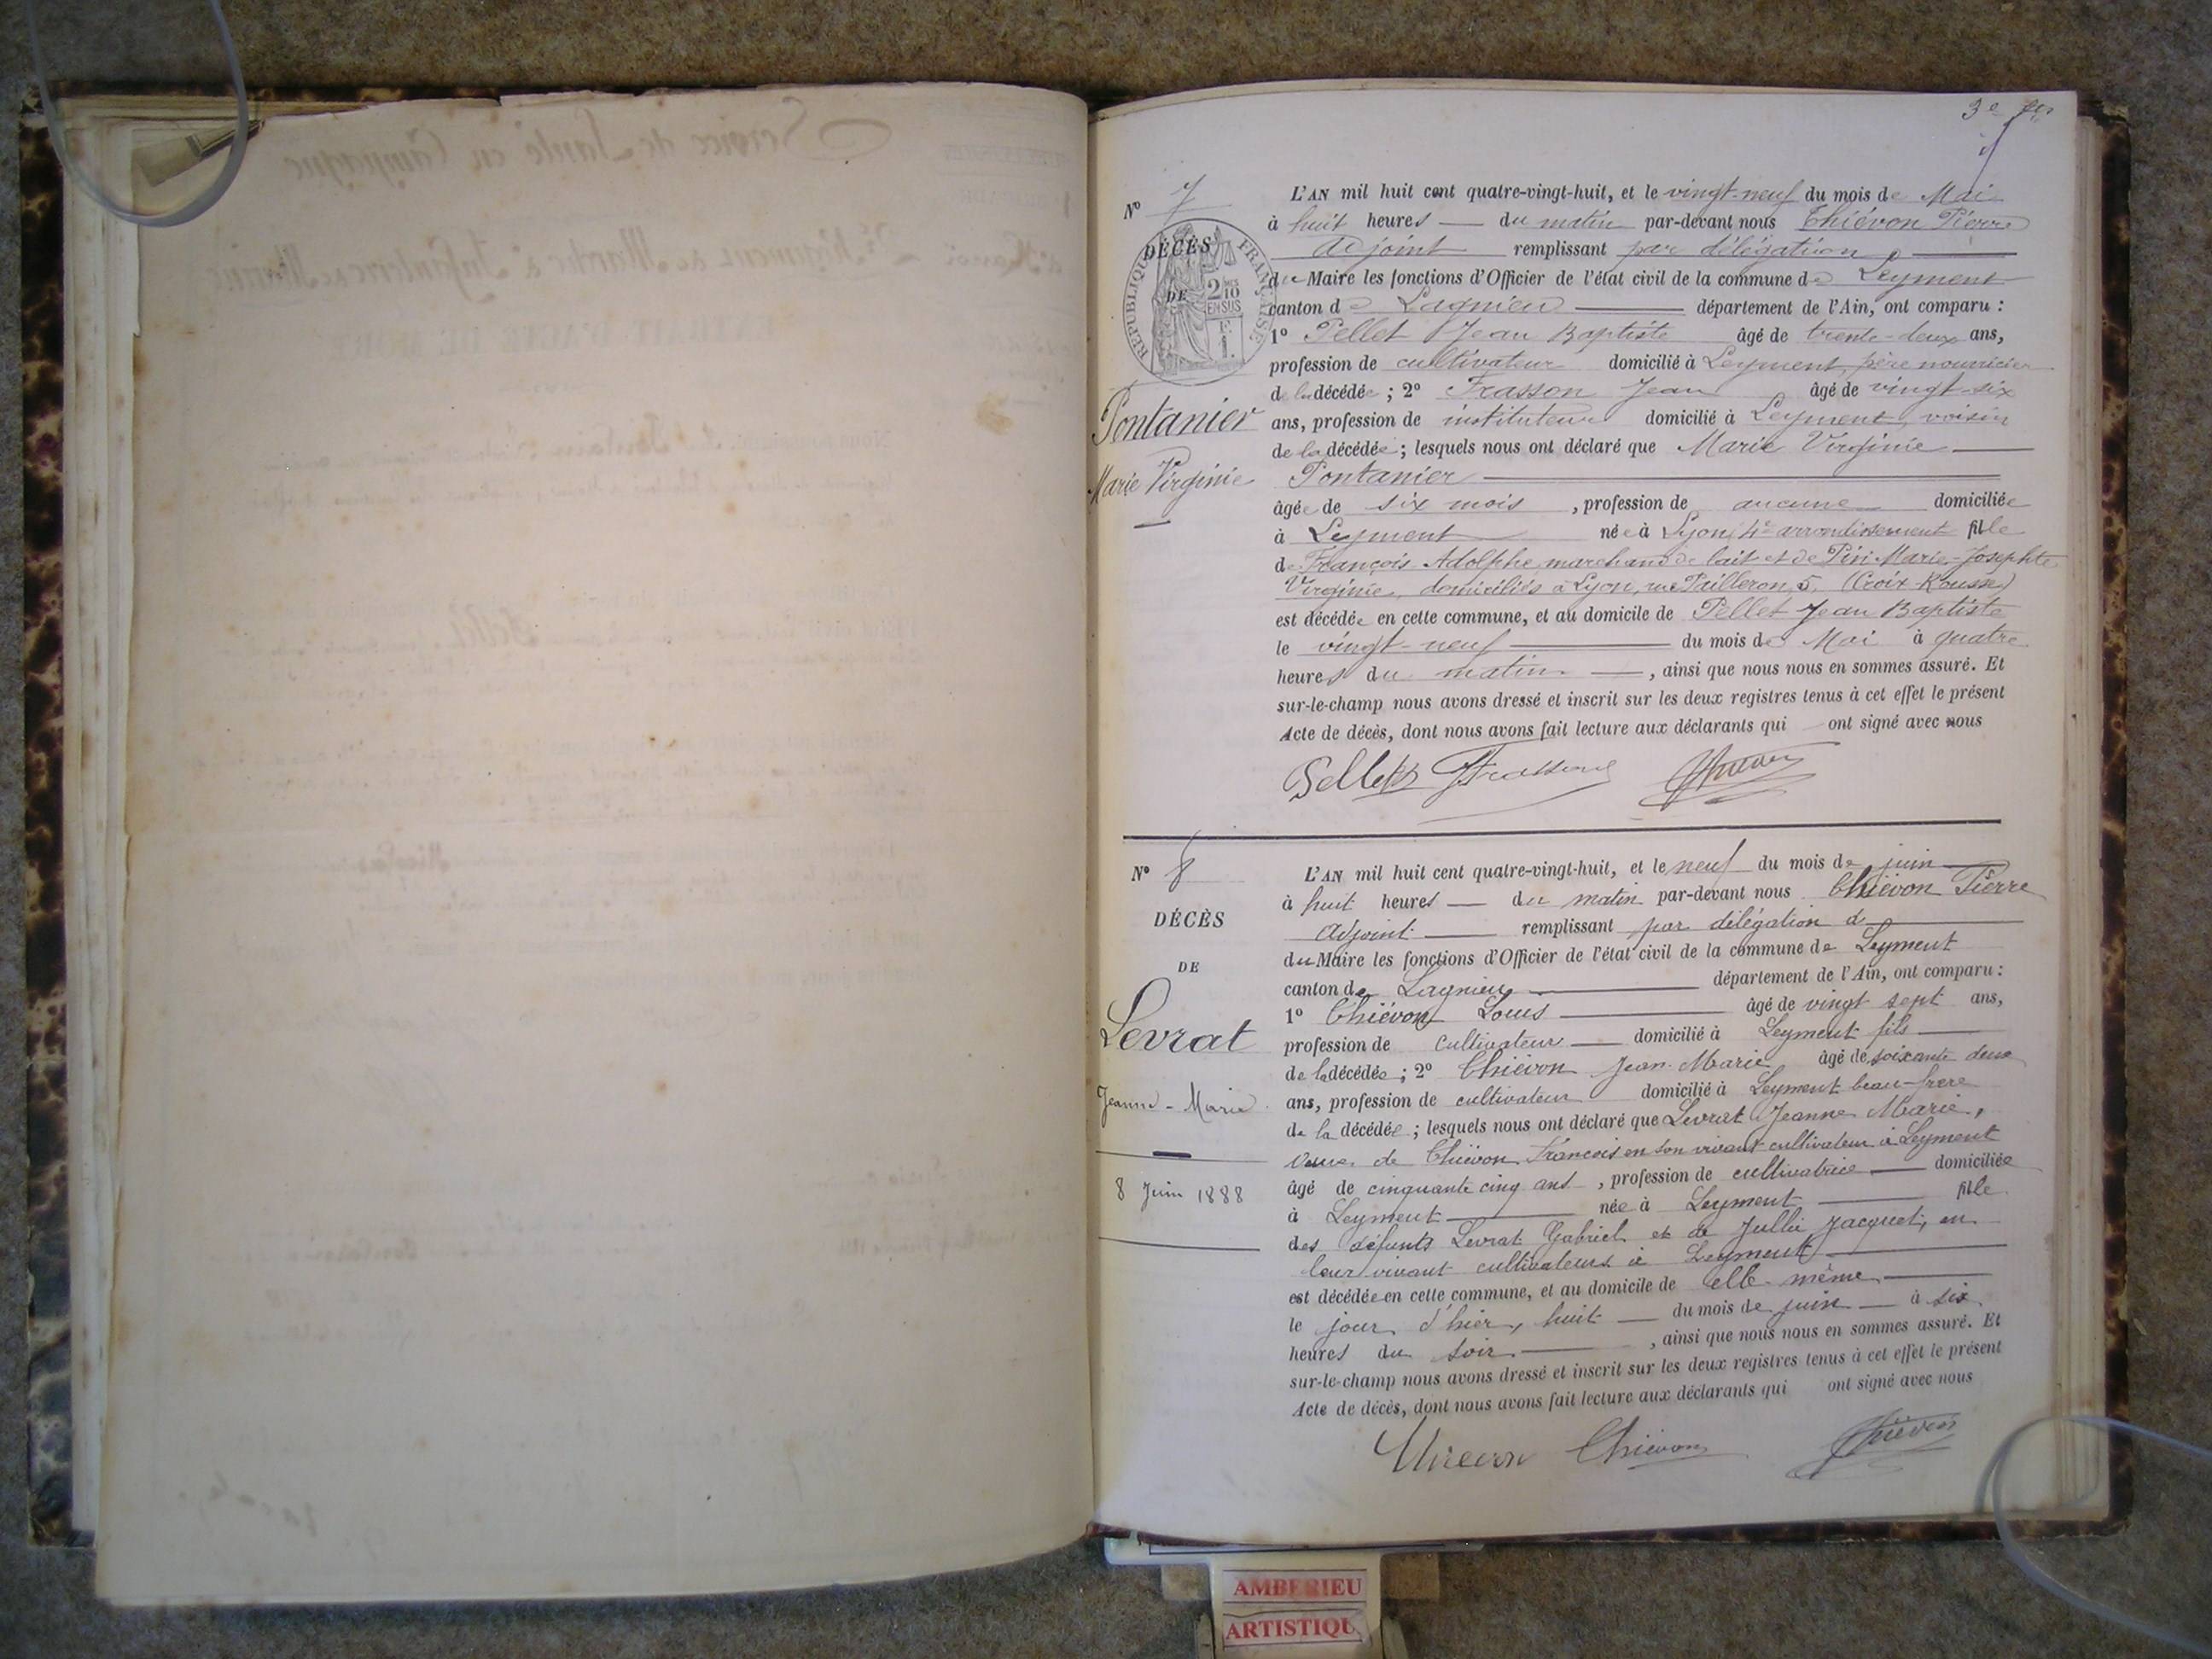 3e
N° 7
DÉCÈS
DE
RÉPUBLIQUE FRANÇAISE
2/10 EN SUS
Pontanier
Marie Virginie
L'AN mil huit cent quatre-vingt-huit, et le vingt-neuf du mois de Mai
à huit heures du matin par-devant nous Chiévon Pierre
adjoint remplissant par délégation
du Maire les fonctions d'Officier de l'état civil de la commune de Leyment
canton de Lagnieu département de l'Ain, ont comparu :
1° Pellet Jean Baptiste âgé de trente-deux ans,
profession de cultivateur domicilié à Leyment, père nourricier
de la décédée ; 2° Frasson Jean âgé de vingt-six
ans, profession de instituteur domicilié à Leyment, voisin
de la décédée ; lesquels nous ont déclaré que Marie Virginie
Pontanier
âgée de six mois , profession de aucune domiciliée
à Leyment née à Lyon, 4e arrondissement fille
de François-Adolphe, marchand de lait et de Marie-Josephte
Virginie, domiciliés à Lyon, rue Pailleron, 5, (Croix-Rousse)
est décédée en cette commune, et au domicile de Pellet Jean Baptiste
le vingt-neuf du mois de Mai à quatre
heures du matin , ainsi que nous nous en sommes assuré. Et
sur-le-champ nous avons dressé et inscrit sur les deux registres tenus à cet effet le présent
Acte de décès, dont nous avons fait lecture aux déclarants qui ont signé avec nous
Pellet Frasson
N° 8
DÉCÈS
DE
Levrat
Jeanne-Marie
8 Juin 1888
L'AN mil huit cent quatre-vingt-huit, et le neuf du mois de juin
à huit heures du matin par-devant nous Chiévon Pierre
adjoint remplissant par délégation d
du Maire les fonctions d'Officier de l'état civil de la commune de Leyment
canton de Lagnieu département de l'Ain, ont comparu :
1° Chiévon Louis âgé de vingt sept ans,
profession de cultivateur domicilié à Leyment fils
de la décédée ; 2° Chiévon Jean-Marie âgé de soixante deux
ans, profession de cultivateur domicilié à Leyment beau-frère
de la décédée ; lesquels nous ont déclaré que Levrat Jeanne Marie,
veuve de Chiévon François en son vivant cultivateur à Leyment
âgé de cinquante cinq ans , profession de cultivatrice domiciliée
à Leyment née à Leyment fille
des défunts Levrat Gabriel et de Jullie Jacquet, en
leur vivant cultivateurs à Leyment
est décédée en cette commune, et au domicile de elle-même
le jour d'hier, huit du mois de juin à six
heures du soir , ainsi que nous nous en sommes assuré. Et
sur-le-champ nous avons dressé et inscrit sur les deux registres tenus à cet effet le présent
Acte de décès, dont nous avons fait lecture aux déclarants qui ont signé avec nous
Chievon Chiévon Chiévon
AMBERIEU
ARTISTIQU